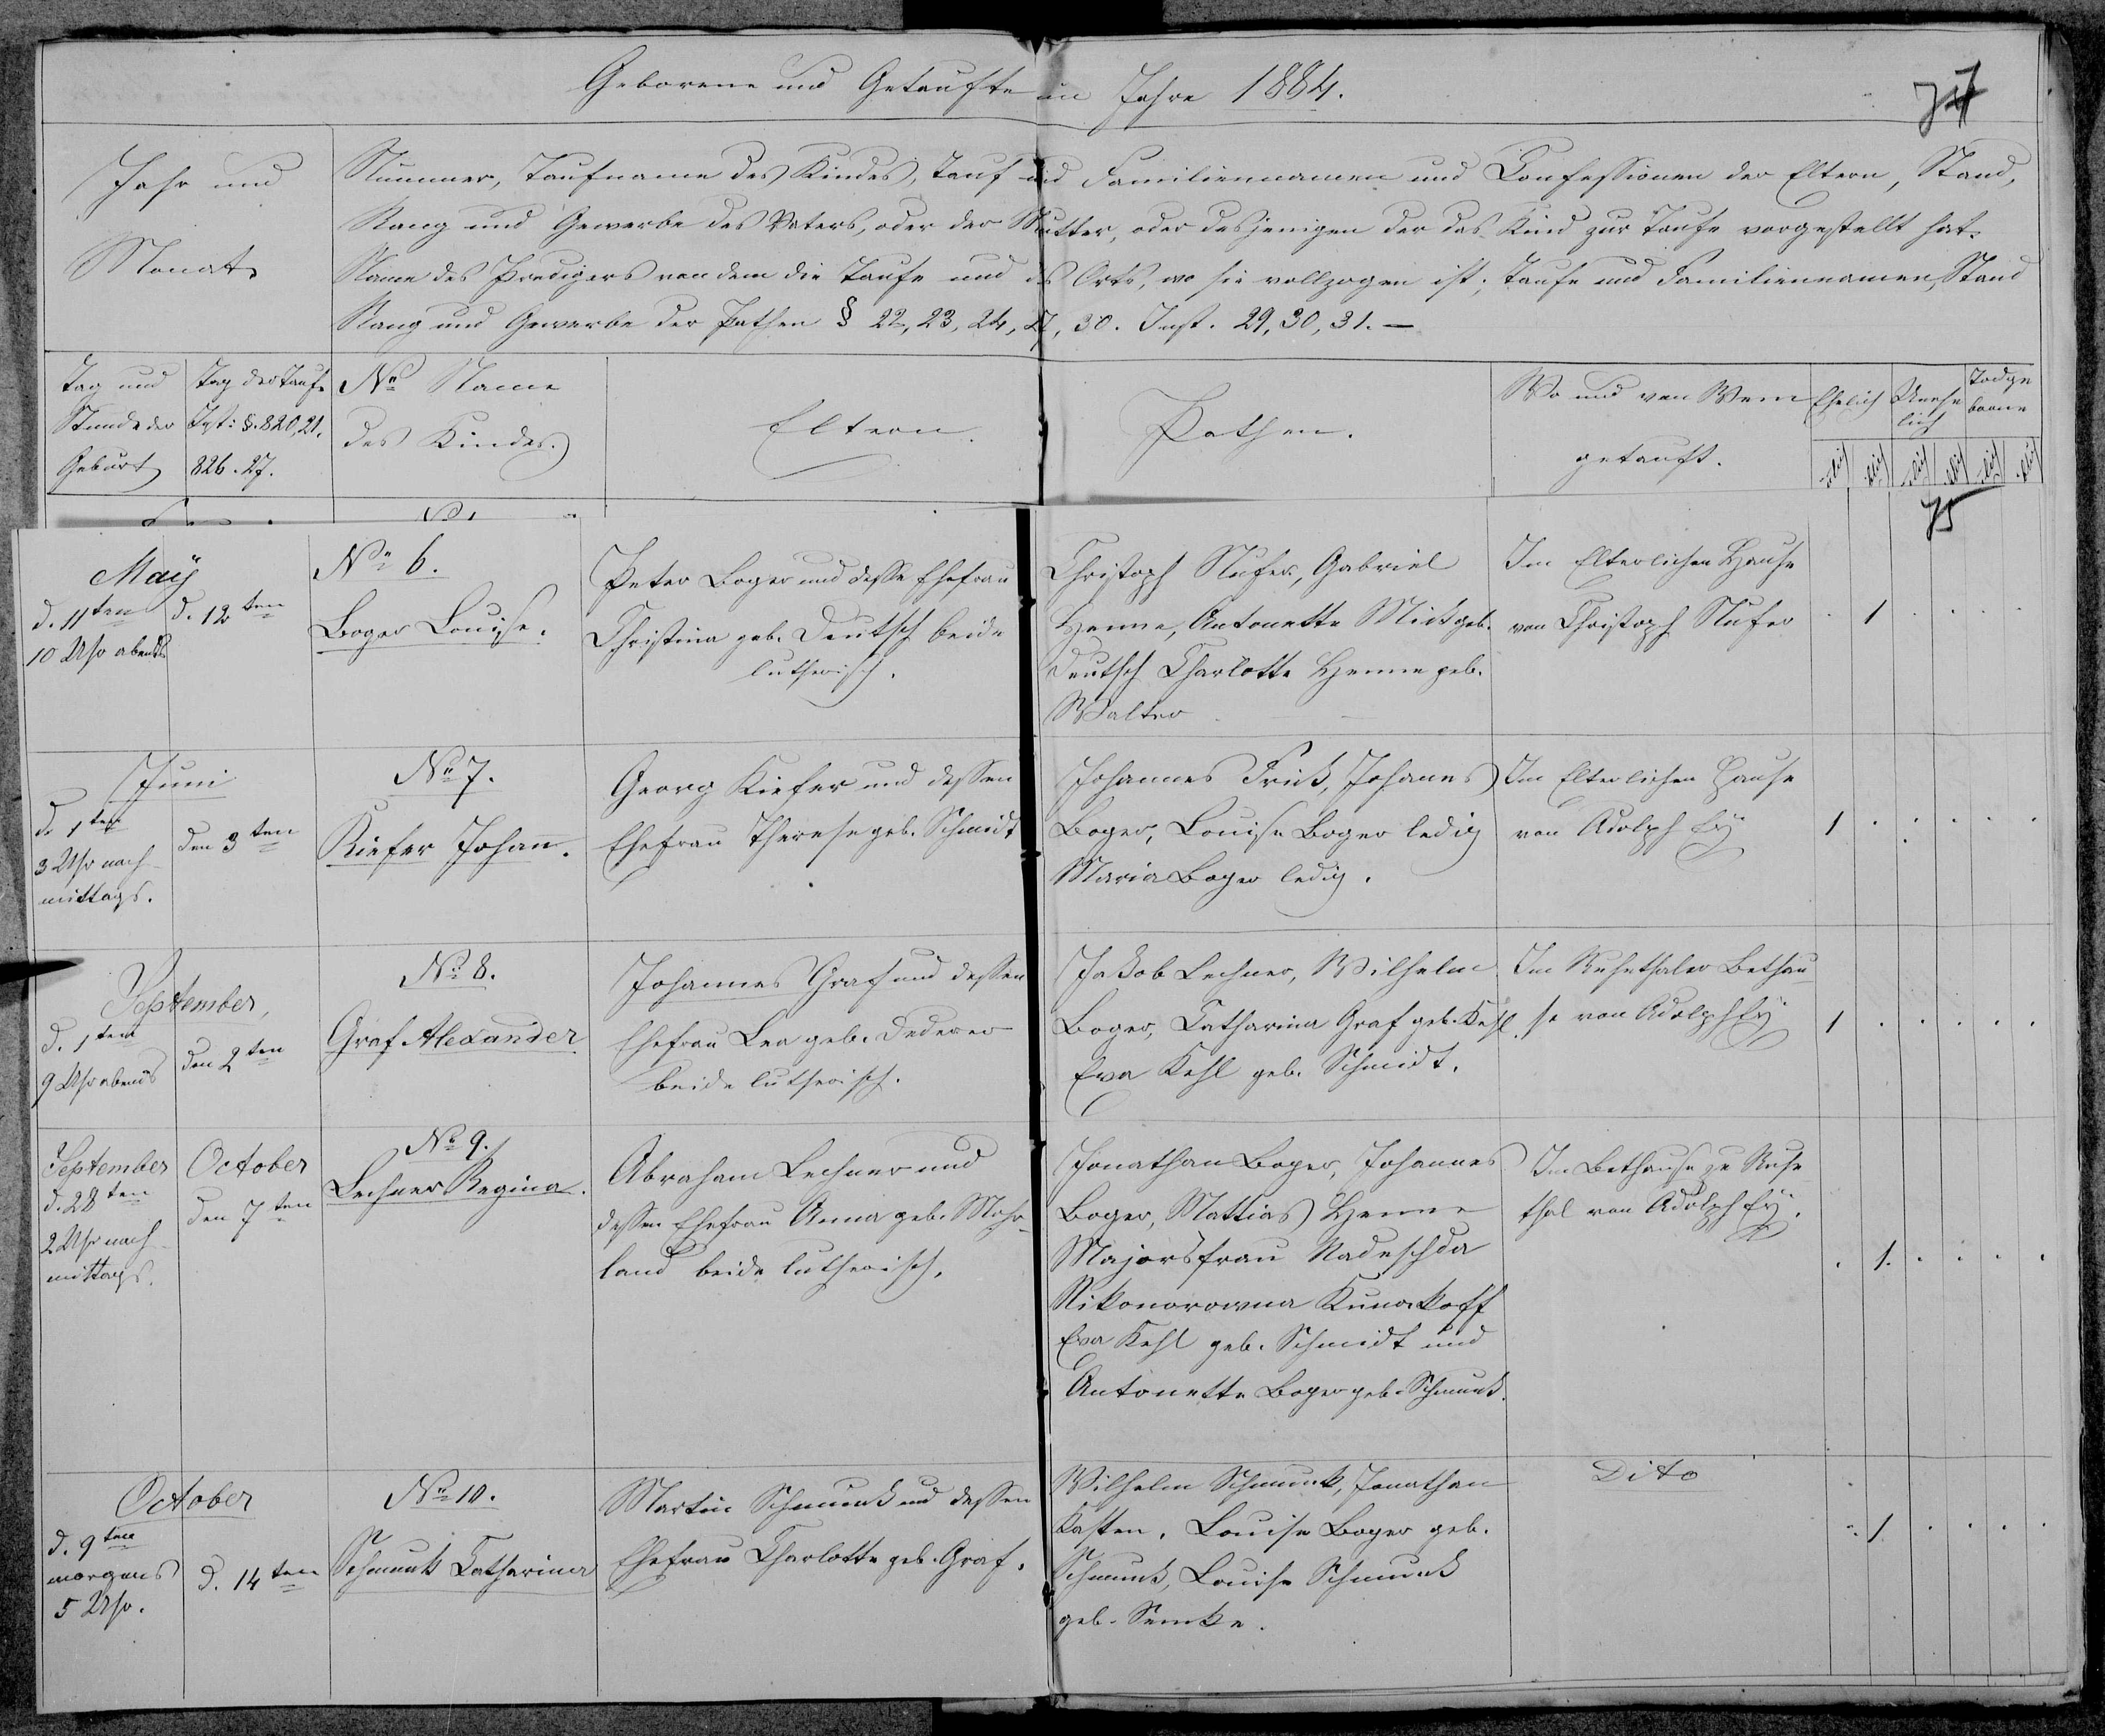 Geborene und Getaufte im Jahre 1884.
Jahr und
Monat
Nummer, Taufname des Kindes, Tauf und Familiennamen und Confessionen der Eltern, Stand,
Rang und Gewerbe des Vaters, oder der Mutter, oder desjenigen der das Kind zur Taufe vorgestellt hat.
Name des Predigers von dem die Taufe und des Orts, wo sie vollzogen ist; Taufe und Familiennamen, Stand
Rang und Gewerbe der Pathen § 22, 23, 24, 27, 30. Inst. 29, 30, 31. —
Tag und
Stunde der
Geburt
Tag der Taufe
§. 820, 21.
826. 27.
No Name
des Kindes.
Eltern.
Pathen.
Wo und von Wem
getauft.
Ehelich
Unehe
lich
Todge
borne
75
May
d. 11ten
10 Uhr abends
d. 12ten
No 6.
Boger Louise.
Peter Boger und desse Ehefrau
Christina geb. Deutsch beide
lutherisch.
Christoph Nufer, Gabriel
Henne, Antonette Mick geb.
Deutsch Charlotte Henne geb.
Walter
Im Elterlichen Hause
von Christoph Nufer
1
Juni
d. 1ten
3 Uhr nach-
mittags.
den 3ten
No 7.
Kiefer Johann.
Georg Kiefer und dessen
Ehefrau Therese geb. Schmidt
Johannes Frick, Johannes
Boger, Louise Boger ledig
Maria Boger ledig.
Im Elterlichen Hause
von Adolph Ey
1
September,
d. 1ten
9 Uhr abends
den 2ten
No 8.
Graf Alexander
Johannes Graf und dessen
Ehefrau Lea geb. Dederer
beide lutherisch.
Jakob Lechner, Wilhelm
Boger, Catharina Graf geb. Kehl.
Eva Kehl geb. Schmidt.
Im Ruhethaler Bethau
se von Adolph Ey
1
September
d. 28ten
2 Uhr nach-
mittags.
October
den 7ten
No 9.
Lechner Regina.
Abraham Lechner und
dessen Ehefrau Anna geb. Mohr-
land beide lutherisch.
Jonathan Boger, Johannes
Boger, Mattias Henne
Majorsfrau Nadeschda
Nikonorowna Kunakoff
Eva Kehl geb. Schmidt und
Antonette Boger geb. Schmunk.
Im Bethause zu Ruhe
thal von Adolph Ey.
1.
October
d. 9ten
morgens
5 Uhr.
d. 14ten
No 10.
Schmunk Catharina
Martin Schmunk und dessen
Ehefrau Charlotte geb. Graf.
Wilhelm Schmunk, Jonathan
Kasten. Louise Boger geb.
Schmunk, Louise Schmunk
geb. Semke.
Dito
1.